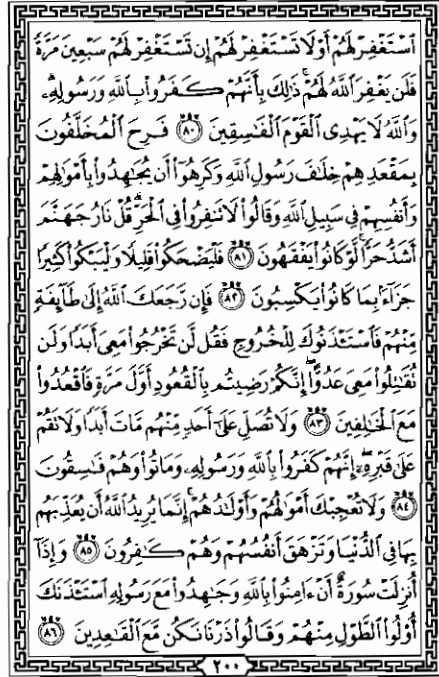 ٱسۡتَغۡفِرۡ لَهُمۡ أَوۡ لَا تَسۡتَغۡفِرۡ لَهُمۡ إِن تَسۡتَغۡفِرۡ لَهُمۡ سَبۡعِينَ مَرَّةٗ
فَلَن يَغۡفِرَ ٱللَّهُ لَهُمۡۚ ذَٰلِكَ بِأَنَّهُمۡ كَفَرُواْ بِٱللَّهِ وَرَسُولِهِۦۗ
وَٱللَّهُ لَا يَهۡدِي ٱلۡقَوۡمَ ٱلۡفَٰسِقِينَ ٨٠ فَرِحَ ٱلۡمُخَلَّفُونَ
بِمَقۡعَدِهِمۡ خِلَٰفَ رَسُولِ ٱللَّهِ وَكَرِهُوٓاْ أَن يُجَٰهِدُواْ بِأَمۡوَٰلِهِمۡ
وَأَنفُسِهِمۡ فِي سَبِيلِ ٱللَّهِ وَقَالُواْ لَا تَنفِرُواْ فِي ٱلۡحَرِّۗ قُلۡ نَارُ جَهَنَّمَ
أَشَدُّ حَرّٗاۚ لَّوۡ كَانُواْ يَفۡقَهُونَ ٨١ فَلۡيَضۡحَكُواْ قَلِيلٗا وَلۡيَبۡكُواْ كَثِيرٗا
جَزَآءَۢ بِمَا كَانُواْ يَكۡسِبُونَ ٨٢ فَإِن رَّجَعَكَ ٱللَّهُ إِلَىٰ طَآئِفَةٖ
مِّنۡهُمۡ فَٱسۡتَـٔۡذَنُوكَ لِلۡخُرُوجِ فَقُل لَّن تَخۡرُجُواْ مَعِيَ أَبَدٗا وَلَن
تُقَٰتِلُواْ مَعِيَ عَدُوًّاۖ إِنَّكُمۡ رَضِيتُم بِٱلۡقُعُودِ أَوَّلَ مَرَّةٖ فَٱقۡعُدُواْ
مَعَ ٱلۡخَٰلِفِينَ ٨٣ وَلَا تُصَلِّ عَلَىٰٓ أَحَدٖ مِّنۡهُم مَّاتَ أَبَدٗا وَلَا تَقُمۡ
عَلَىٰ قَبۡرِهِۦٓۖ إِنَّهُمۡ كَفَرُواْ بِٱللَّهِ وَرَسُولِهِۦ وَمَاتُواْ وَهُمۡ فَٰسِقُونَ
٨٤ وَلَا تُعۡجِبۡكَ أَمۡوَٰلُهُمۡ وَأَوۡلَٰدُهُمۡۚ إِنَّمَا يُرِيدُ ٱللَّهُ أَن يُعَذِّبَهُم
بِهَا فِي ٱلدُّنۡيَا وَتَزۡهَقَ أَنفُسُهُمۡ وَهُمۡ كَٰفِرُونَ ٨٥ وَإِذَآ
أُنزِلَتۡ سُورَةٌ أَنۡ ءَامِنُواْ بِٱللَّهِ وَجَٰهِدُواْ مَعَ رَسُولِهِ ٱسۡتَـٔۡذَنَكَ
أُوْلُواْ ٱلطَّوۡلِ مِنۡهُمۡ وَقَالُواْ ذَرۡنَا نَكُن مَّعَ ٱلۡقَٰعِدِينَ ٨٦
٢٠٠